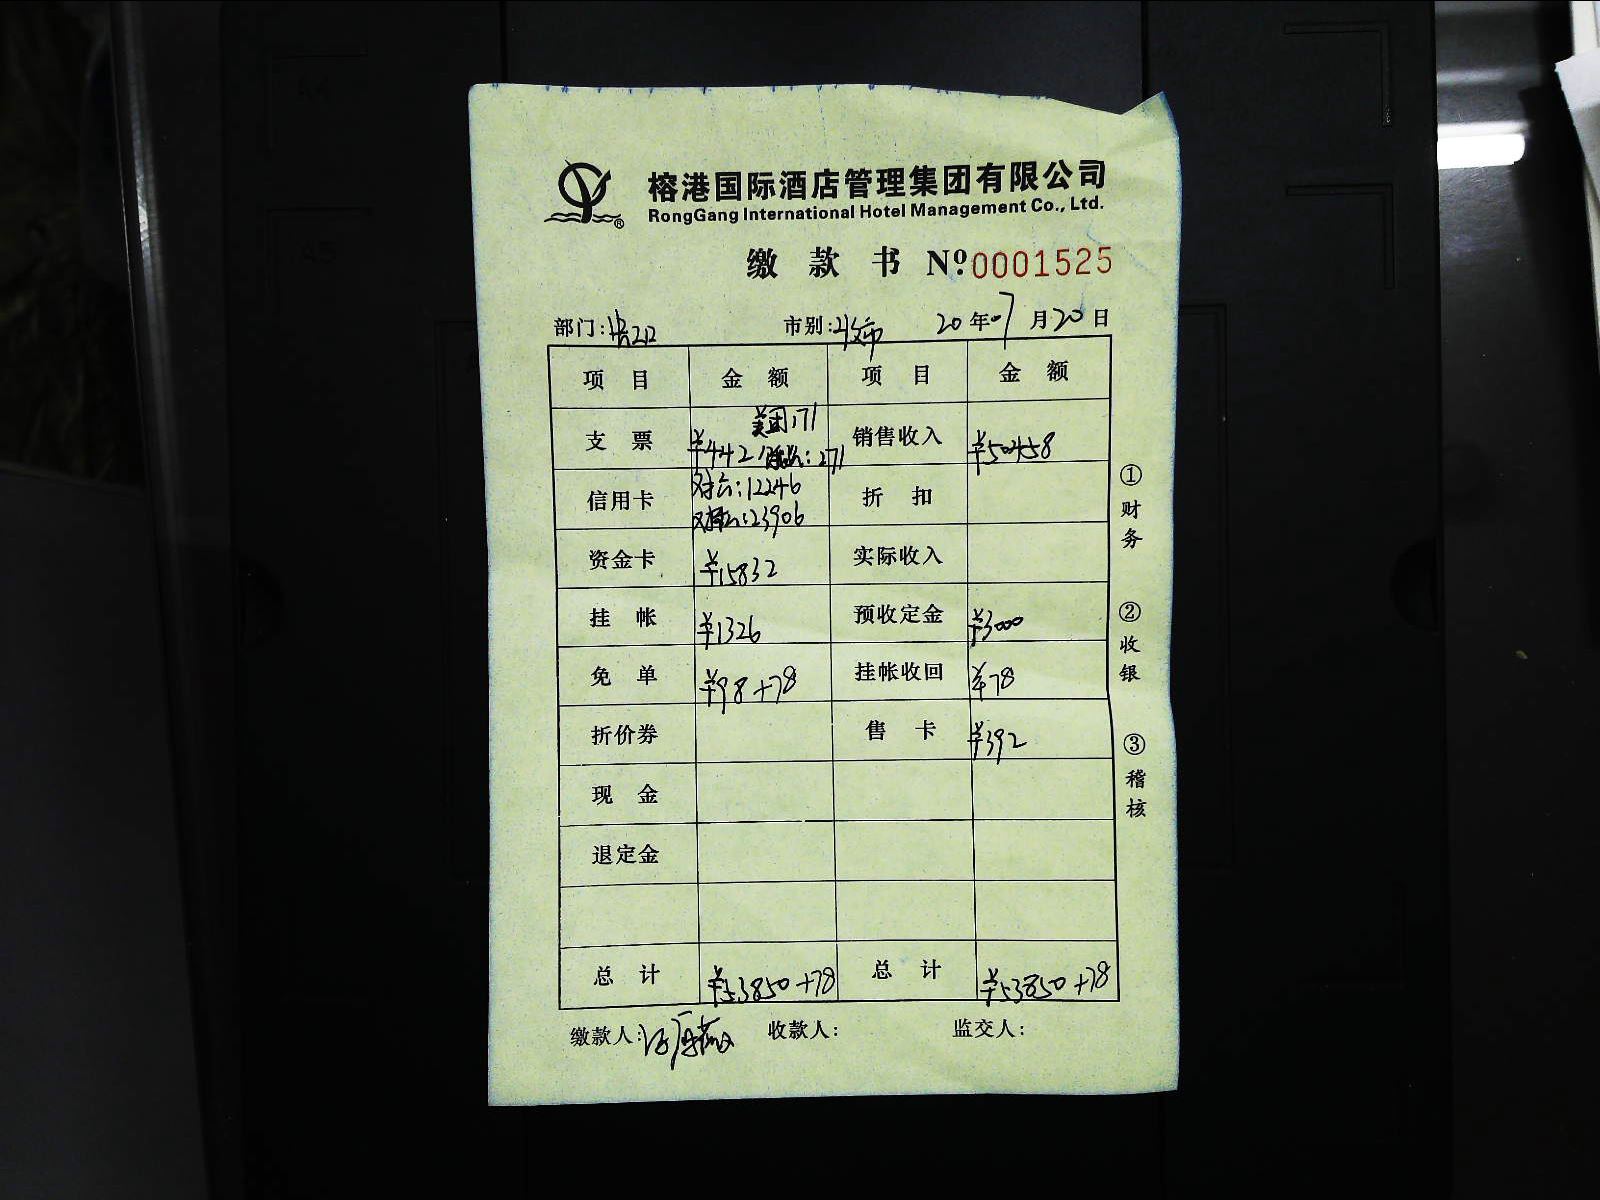 榕港国际酒店管理集团有限公司
RongGang International Hotel Management Co., Ltd.
缴 款 书 Nº0001525
部门: 市别: 20 年 07 月 20 日
项 目 金 额 项 目 金 额
美团171
支 票 ¥442 : 271 销售收入 ¥50458
信用卡 对公:12246 折 扣
:23906
资金卡 ¥15832 实际收入
挂 帐 ¥1326 预收定金 ¥3000
免 单 ¥98+78 挂帐收回 ¥78
折价券 售 卡 ¥392
现 金
退定金
总 计 ¥53850+78 总 计 ¥53850+78
缴款人: 收款人: 监交人:
①财务
②收银
③稽核